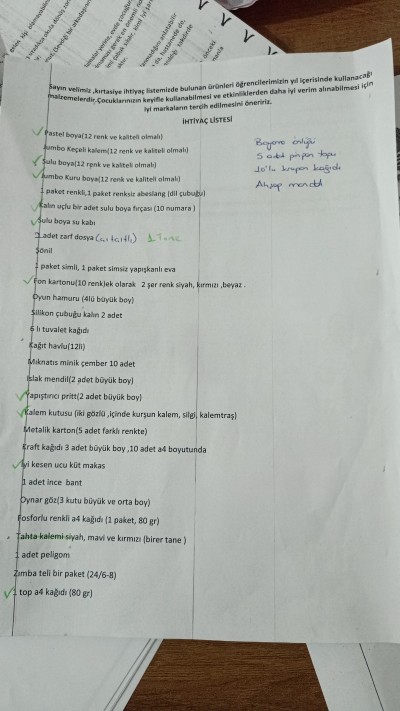 Sayın velimiz ,kırtasiye ihtiyaç listemizde bulunan ürünleri öğrencilerimizin yıl içerisinde kullanacağı
malzemelerdir.Çocuklarınızın keyifle kullanabilmesi ve etkinliklerden daha iyi verim alınabilmesi için
iyi markaların tercih edilmesini öneririz.
İHTİYAÇ LİSTESİ
Pastel boya(12 renk ve kaliteli olmalı)
Jumbo Keçeli kalem(12 renk ve kaliteli olmalı)
Sulu boya(12 renk ve kaliteli olmalı)
Jumbo Kuru boya(12 renk ve kaliteli olmalı)
1 paket renkli,1 paket renksiz abeslang (dil çubuğu)
Kalın uçlu bir adet sulu boya fırçası (10 numara )
Sulu boya su kabı
2 adet zarf dosya (çıtçıtlı) 1 Tane
Şönil
1 paket simli, 1 paket simsiz yapışkanlı eva
Fon kartonu(10 renk)ek olarak 2 şer renk siyah, kırmızı ,beyaz .
Oyun hamuru (4lü büyük boy)
Silikon çubuğu kalın 2 adet
6 lı tuvalet kağıdı
Kağıt havlu(12li)
Mıknatıs minik çember 10 adet
Islak mendil(2 adet büyük boy)
Yapıştırıcı pritt(2 adet büyük boy)
Kalem kutusu (iki gözlü ,içinde kurşun kalem, silgi, kalemtraş)
Metalik karton(5 adet farklı renkte)
Kraft kağıdı 3 adet büyük boy ,10 adet a4 boyutunda
İyi kesen ucu küt makas
1 adet ince bant
Oynar göz(3 kutu büyük ve orta boy)
Fosforlu renkli a4 kağıdı (1 paket, 80 gr)
Tahta kalemi siyah, mavi ve kırmızı (birer tane )
1 adet peligom
Zımba teli bir paket (24/6-8)
1 top a4 kağıdı (80 gr)
Boyama önlüğü
5 adet pinpon topu
10'lu krapon kağıdı
Ahşap mandal